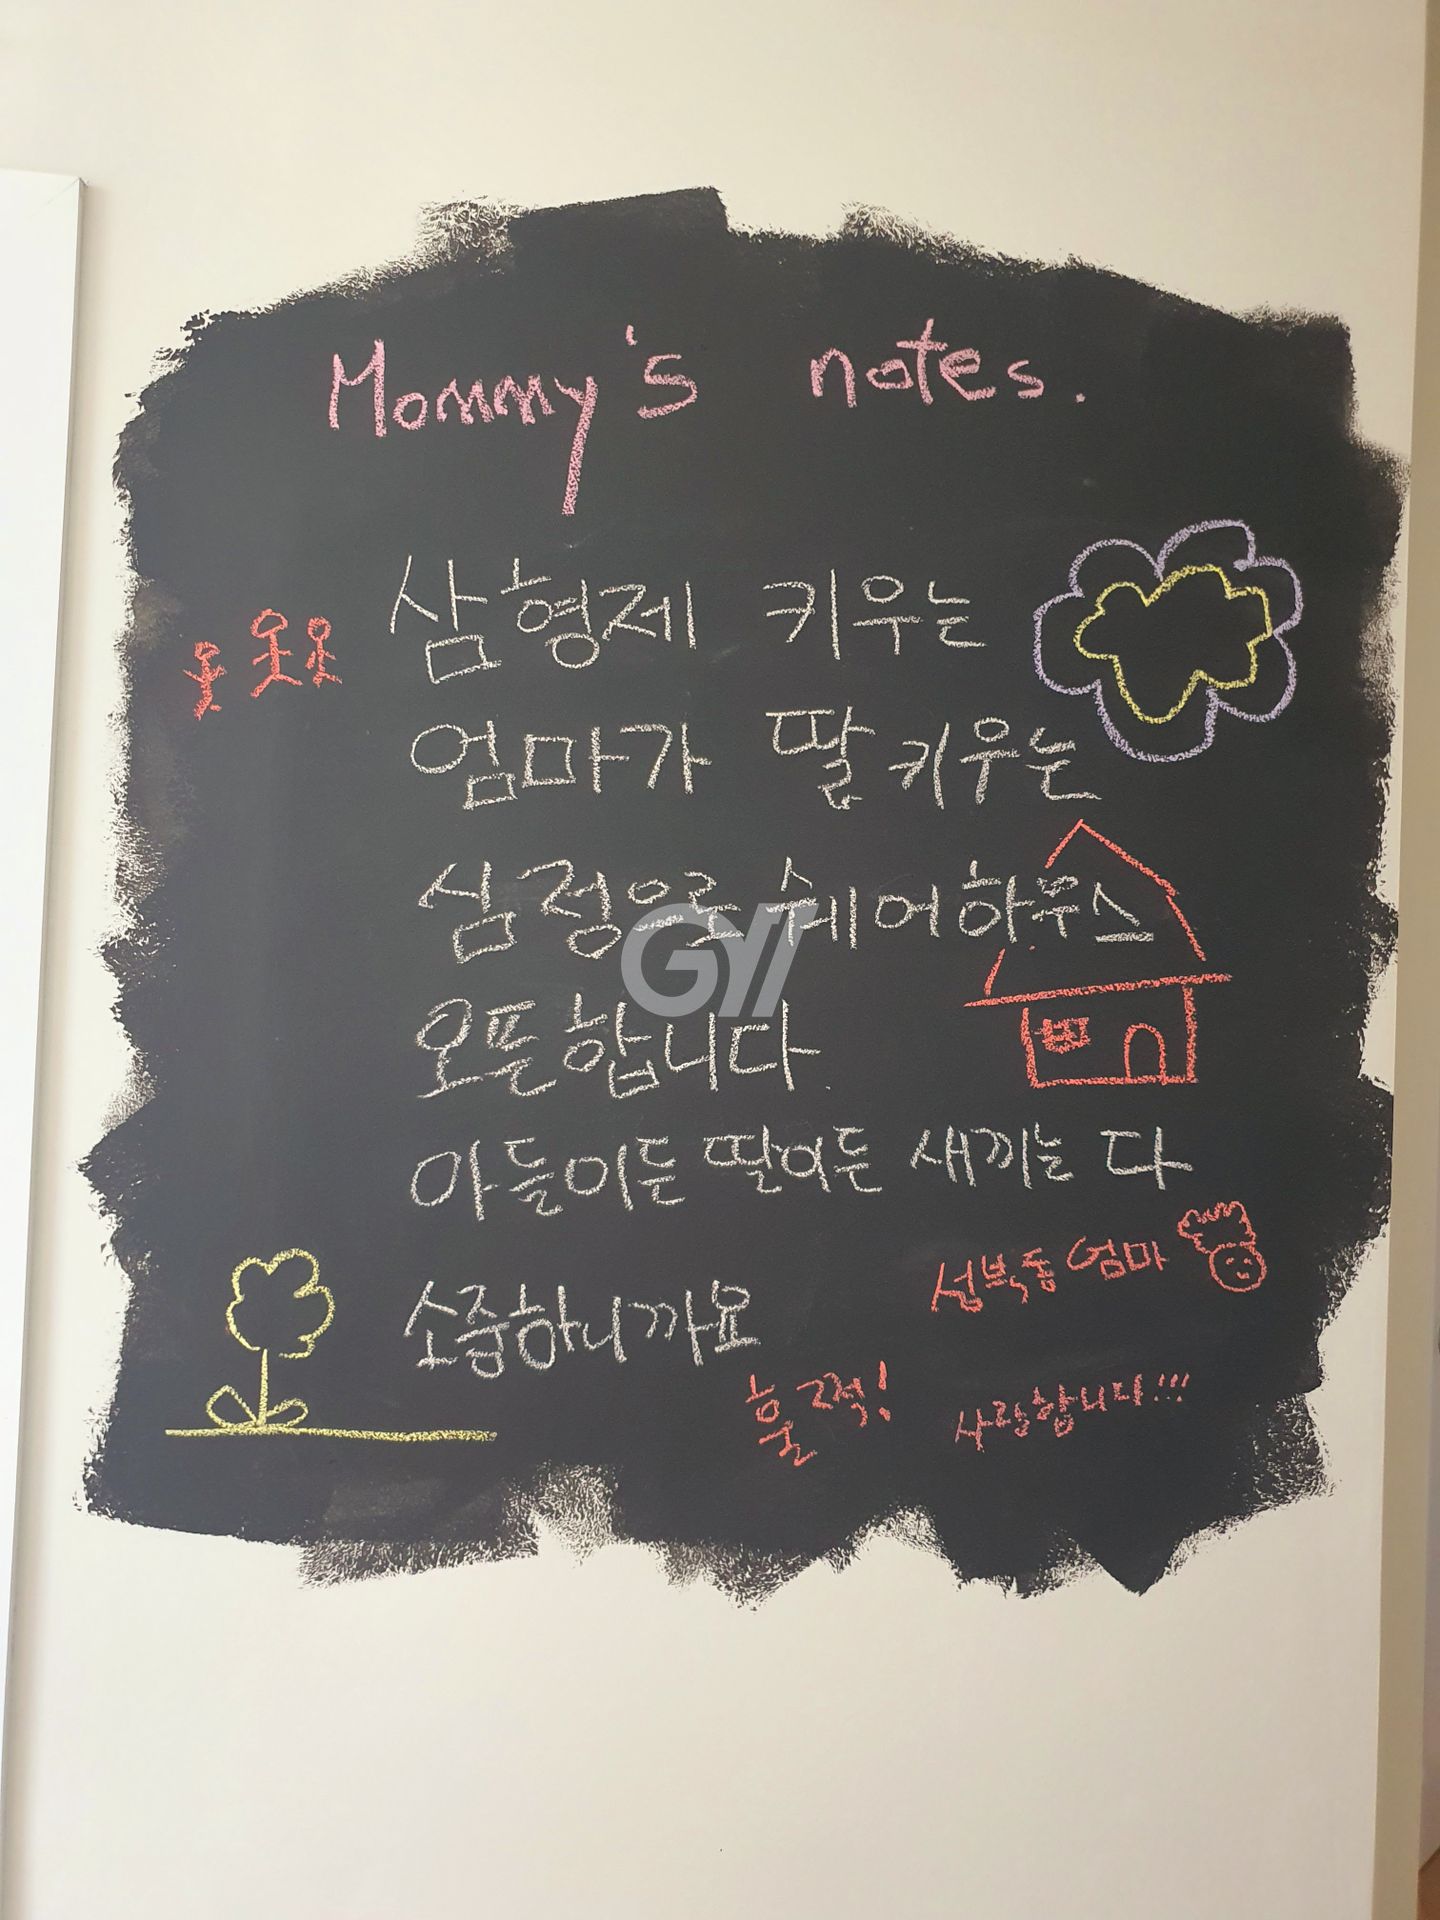 Mommy's notes.
삼형제 키우는
엄마가 딸 키우는
심정으로 쉐어하우스
오픈합니다
아들이든 딸이든 새끼는 다
소중하니까요
성북동 엄마
훌쩍!
사랑합니다!!!
GYI